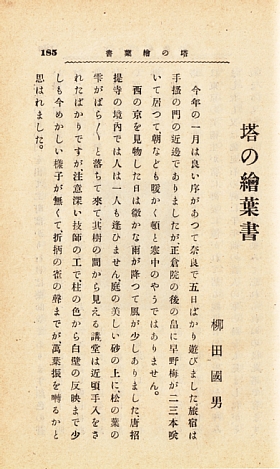 塔の繪葉書
185
塔の繪葉書
柳田國男
今年の一月は良い序があつて奈良で五日ばかり遊びました。旅宿は
手搔の門の近邊でありましたが正倉院の後の畠に早野梅が二三本咲
いて居つて朝なども暖かく頓と寒中のやうではありません。
西の京を見物した日は微かな雨が降つて風が少しありました。唐招
提寺の境内では人は一人も逢ひません。庭の美しい砂の上に、松の葉の
雫がばら〱と落ちて來て、其樹の間から見える講堂は近頃手入をさ
れたばかりですが注意深い技師の工で、柱の色から白壁の反映まで少
しも今めかしい樣子が無くて、折柄の雀の聲までが、萬葉振を囀るかと
思はれました。